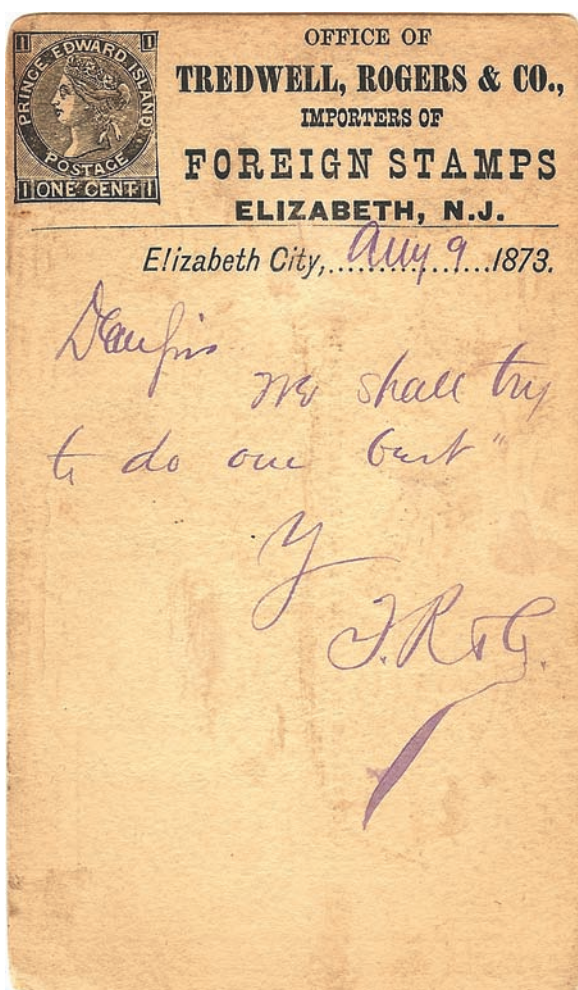 1 1
PRINCE EDWARD ISLAND
POSTAGE
1 ONE CENT 1
OFFICE OF
TREDWELL, ROGERS & CO.,
IMPORTERS OF
FOREIGN STAMPS
ELIZABETH, N.J.
Elizabeth City, Aug 9 1873.
Dear Sir
We shall try
to do our best"
Y
T. R & Co.